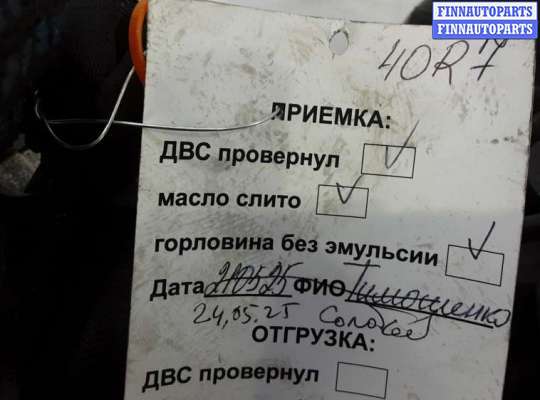 FINNAUTOPARTS
FINNAUTOPARTS
40R7
ПРИЕМКА:
ДВС провернул
масло слито
горловина без эмульсии
Дата 210525 ФИО Тимошенко
24,05.25
ОТГРУЗКА:
ДВС провернул